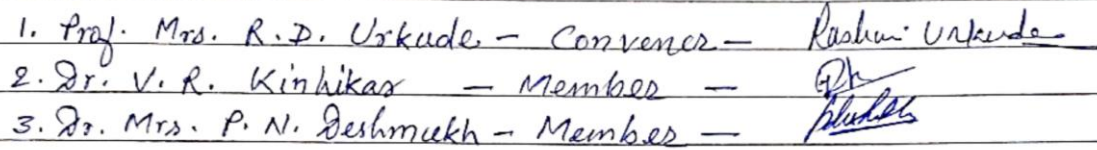 1. Prof. Mrs. R. D. Urkude - Convener - Rashmi Urkude
2. Dr. V. R. Kinhikar - Member -
3. Dr. Mrs. P. N. Deshmukh - Member -